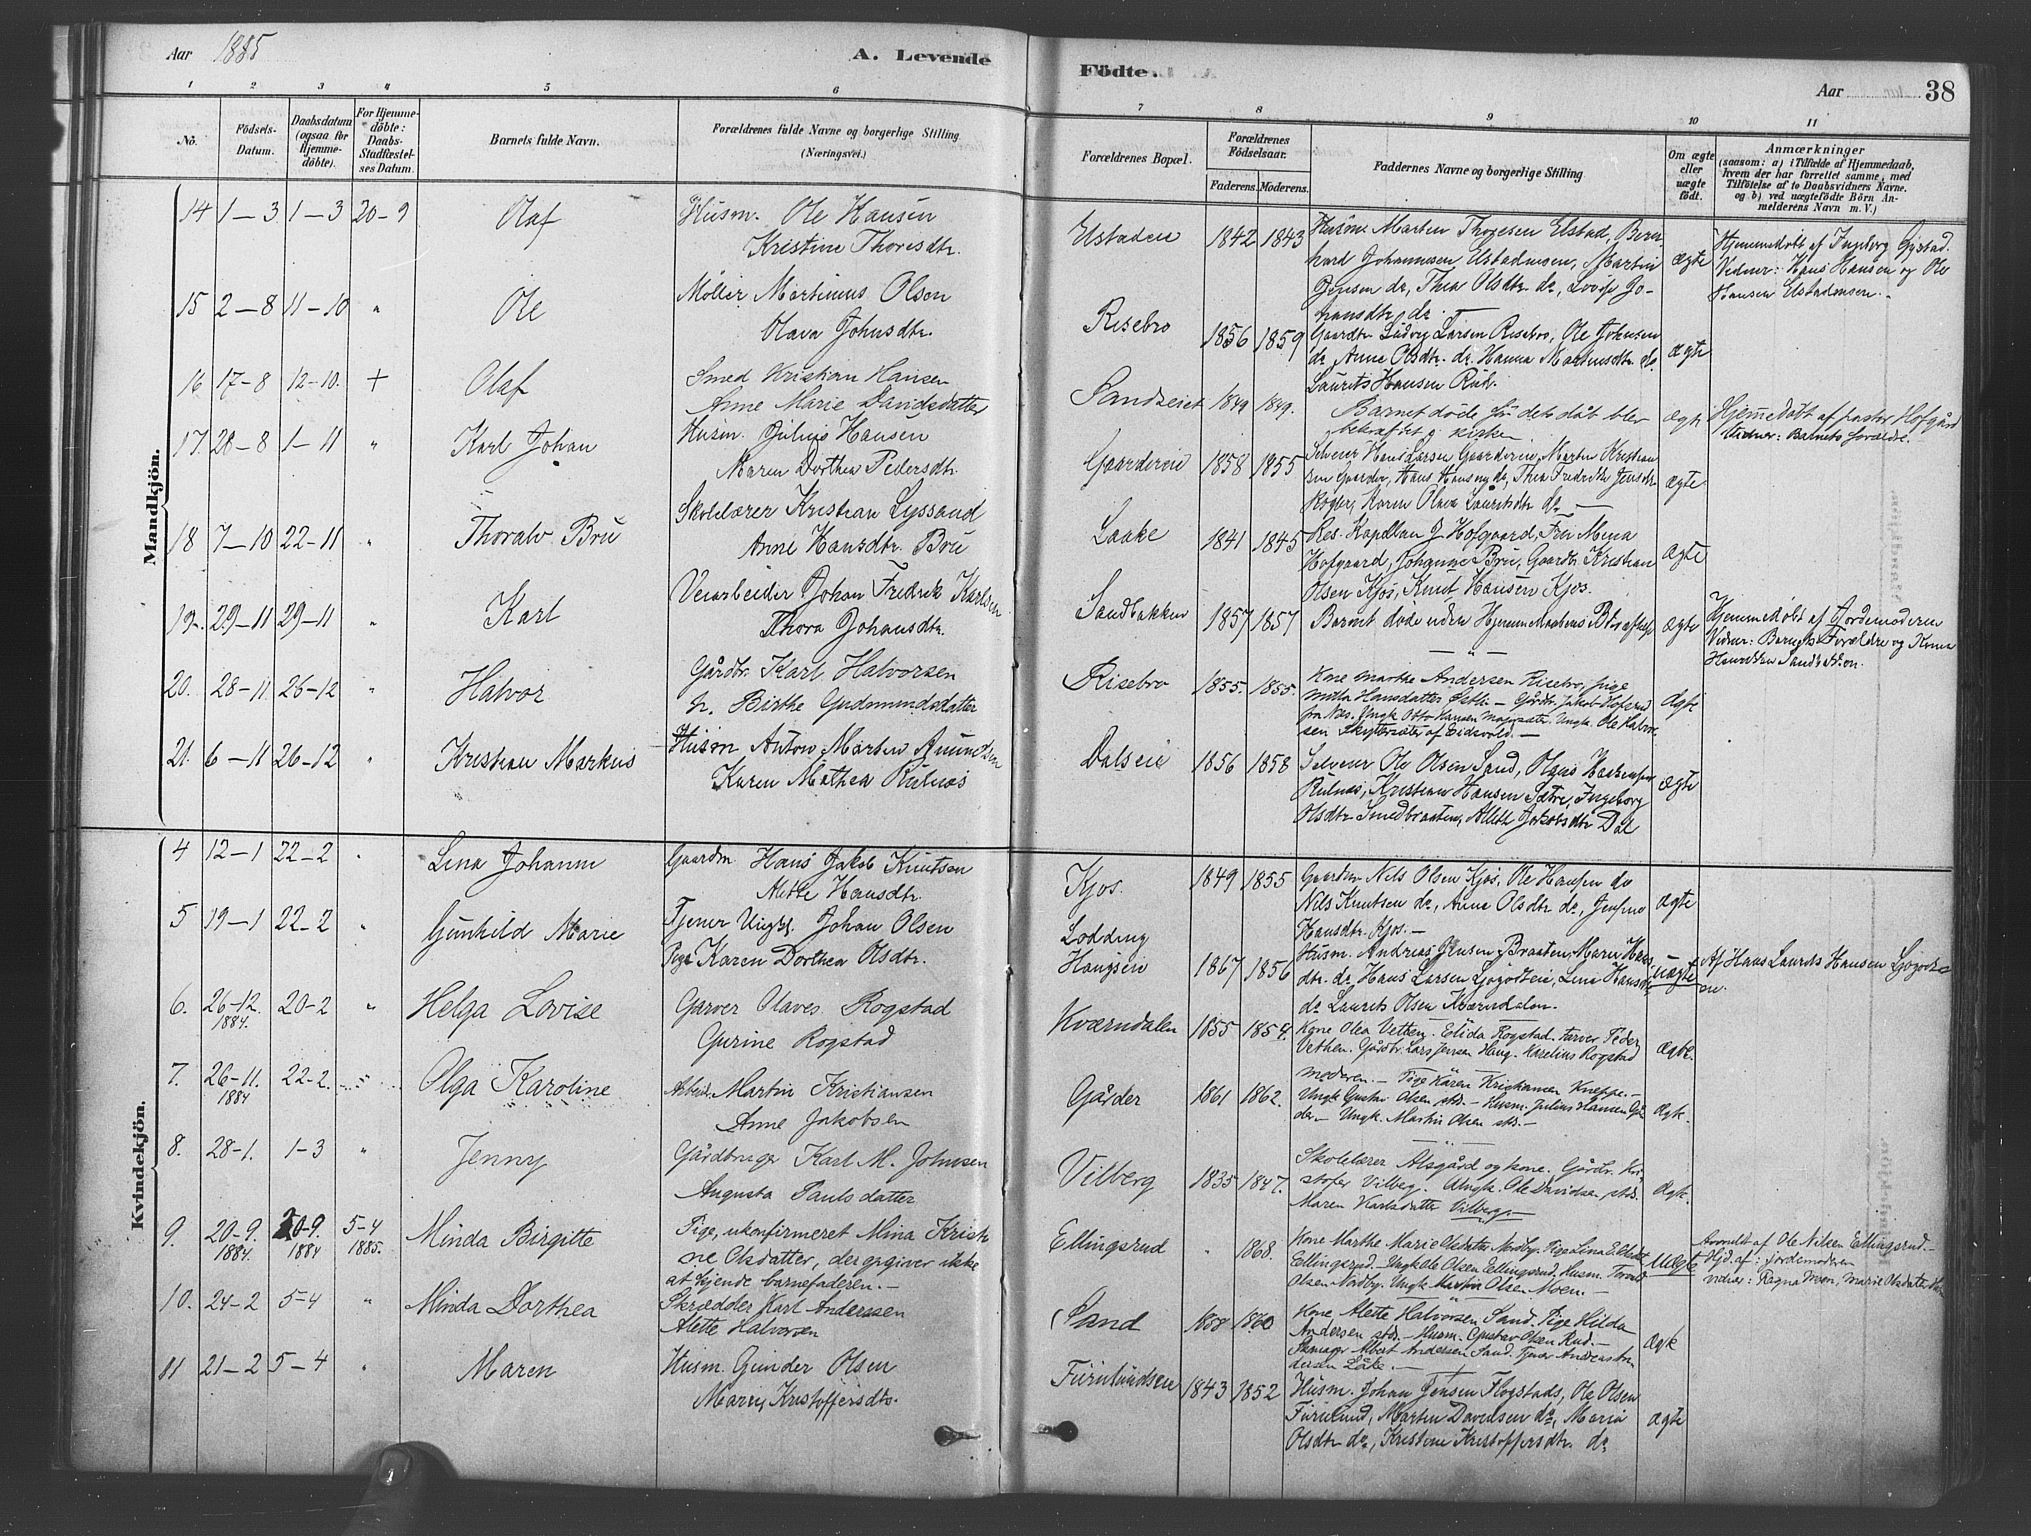 Aar 1885
A. Levende
Födte.
Aar
38
1 2 3 4 5 6 7 8 9 10 11
No.
Födsels-
Datum.
Daabsdatum
(ogsaa for
Hjemme-
döbte).
For Hjemme-
döbte:
Daabs-
Stadfæstel-
ses Datum.
Barnets fulde Navn.
Forældrenes fulde Navne og borgerlige Stilling.
(Næringsvei.)
Forældrenes Bopæl.
Forældrenes
Födselsaar.
Faderens. Moderens.
Faddernes Navne og borgerlige Stilling
Om ægte
eller
uægte
födt.
Anmærkninger
(saasom: a) i Tilfælde af Hjemmedaab,
hvem der har forrettet samme, med
Tilföielse af to Daabsvidners Navne.
og b) ved uægtefödte Börn An-
melderens Navn m. V.)
Mandkjön.
14 1-3 1-3 20-9 Olaf
Husm. Ole Hansen
Kristine Thoresdtr.
Ustadeie 1842 1843
Martin Elstad,
Johannesen Ustadensen, Martin
Jensen do, Thea Olsdtr do,
ægte
Hjemmedøbt af Ingeborg
Vidner: Hans Hansen og Ole
Hansen Ustadensen.
15 2-8 11-10 " Ole
Møller Martinius Olsen
Olava Johnsdtr.
Risebro 1856 1859
Gaardbr. Ludvig Larsen Risebro, Ole Johnsen
do, Anne Olsdtr. do, Hanna do,
Laurits Hansen Rud.
ægte
16 17-8 12-10. + Olaf
Smed Kristian Hansen
Anne Marie Davidsdatter
Sandseiet 1849 1849.
Barnet døde før dets dåb blev
bekræftet i kirken
ægte
Hjemmedøbt af pastor Hofgård
Vidner: Barnets forældre.
17. 28-8 1-11 " Karl Johan
Husm. Julius Hansen
Maren Dorthea Pedersdtr.
Gaardereie 1858 1855
Selveier Hans Larsen Gaardereie, Martin Kristian
sen Gaarder, Hans Hansen do, Thea Fredrikke Jensdtr
Karen Olava Lauritsdtr do
ægte
18 7-10 22-11 " Thoralv Bru
Skolelærer Kristian Lyssand
Anne Hansdtr. Bru
Laake 1841 1845
Res. Kapellan J. Hofgaard, Fru Mina
Hofgaard, Johanne Bru, Gaardbr. Kristian
Olsen Kjos, Knut Hansen Kjos.
ægte
19. 29-11 29-11 " Karl
Veiarbeider Johan Fredrik Karlsen
Thora Johansdtr.
Sandbakken 1857 1857
Barnet døde uden
ægte
Hjemmedøbt af Jordemoderen
Vidner: Barnets Forældre og
20. 28-11. 26-12 " Halvor
Gårdbr. Karl Halvorsen
h. Birthe Gudmundsdatter
Risebro 1855. 1855.
Kone Marthe Andersen Risebro, pige
Hansdatter Østli - Gårdbr. Jakob
fra Næs. Ungk. Otto Hansen Ungk. Ole Halvor
sen af Eidsvold.
Ægte
21. 6-11 26-12 " Kristian Markus
Husm Anton Martin Amundsen
Karen Mathea Rulnæs
Dalseie 1856 1858
Selveier Ole Olsen Sand, Hans
Rulnæs, Kristian Hansen Sætre, Ingeborg
Olsdtr Smedbraaten, Jakobsdtr Dal
ægte
Kvindekjön.
4 12-1 22-2 " Lina Johanne
Gaardm Hans Jakob Knutsen
Alette Hansdtr.
Kjos. 1849 1855
Gaardbr Nils Olsen Kjos, Ole Hansen do
Nils Knutsen do, Anne Olsdtr do,
Hansdtr. Kjos.
ægte
5 19-1 22-2 " Gunhild Marie
Tjener Ungk. Johan Olsen
Pige Karen Dorthea Olsdtr.
Lodding
Haugseie 1867 1856
Husm. Andreas Jensen Braaten, Maren Hans
dtr. do, Hans Larsen Lina Hansdtr
do, Laurits Olsen Kværndalen.
uægte
Af Hans Laurits Hansen
6. 26-12. 1884. 20-2 " Helga Lovise
Garver Olaves Rogstad
Gurine Rogstad
Kværndalen 1855 1854.
Kone Olea Vethen. Elida Rogstad. Farver Peder
Vethen. Gårdbr. Lars Jensen Haug. Karelius Rogstad
Ægte.
7. 26-11. 1884 22-2. " Olga Karoline
Arbeid. Martin Kristiansen
Anne Jakobsen
Gårder 1861 1862.
moderen. - Pige Karen Kristiansen
Ungk Gustav Olsen stds. - Husm. Julius Hansen Går
der - Ungk. Martin Olsen stds. -
Ægte.
8. 28-1. 1-3 " Jenny
Gårdbruger Karl M. Johnsen
Augusta Paulsdatter
Vilberg 1835 1847.
Skolelærer Alsgård og kone. Gårdbr. Kri
stofer Vilberg. Ungk. Ole Davidsen stds.
Maren Karlsdatter Vilberg.
Ægte.
9. 20-9. 1884. 20-9. 1884 5-4 1885. Minda Birgitte
Pige, ukonfirmeret Mina Kristi
ne Olsdatter, der opgiver ikke
at kjende barnefaderen. -
Ellingsrud " 1868.
Kone Marthe Marie Olsdatter Nordby. Pige Lina
Ellingsrud. - Ungk Ole Olsen Ellingsrud, Husm.
Olsen Nordby. Ungk. Martin Olsen Moen. -
Uægte
Anmeldt af Ole Nilsen Ellingsrud. -
Hjd. af: jordemoderen
vidner: Ragna Moen, Marie Olsdatter
10. 24-2 5-4 " Minda Dorthea
Skrædder Karl Anderssen
Alette Halvorsen
Sand 1858 1860
Kone Alette Halvorsen Sand. Pige Hilda
Andersen stds. - Husm. Gustav Olsen Rud. -
Albert Andersen Sand. Tjener
dersen Låke. -
Ægte
11 21-2 5-4 " Maren
Husm. Gunder Olsen
Marie Kristoffersdtr.
Furulundseie 1843 1852
Husm. Johan Jensen Flogstad, Ole Olsen
Furulund, Martin Davidsen do, Maria
Olsdtr do, Kristine Kristoffersdtr. do
ægte